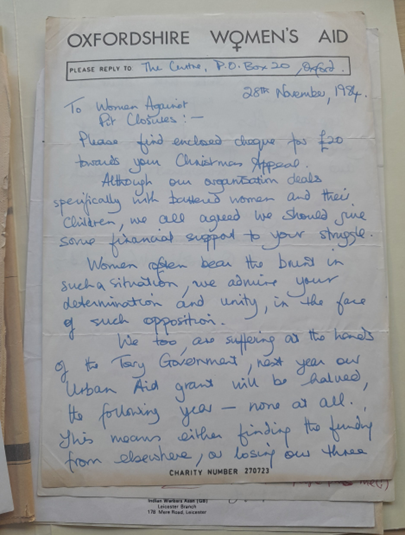 OXFORDSHIRE WOMEN'S AID
PLEASE REPLY TO The Centre, P.O. Box 20, Oxford.
28TH November, 1984.
To Women Against
Pit Closures:-
Please find enclosed cheque for £20
towards your Christmas Appeal.
Although our organisation deals
specifically with battered women and their
children, we all agreed we should give
some financial support to your struggle.
Women often bear the brunt in
such a situation, we admire your
determination and unity, in the face
of such opposition.
We too, are suffering at the hands
of the Tory Government, next year our
Urban Aid grant will be halved,
the following year — none at all.
This means either finding the funding
from elsewhere, or losing our three
CHARITY NUMBER 270723
Indian Workers Assn (GB)
Leicester Branch
178 Mere Road, Leicester